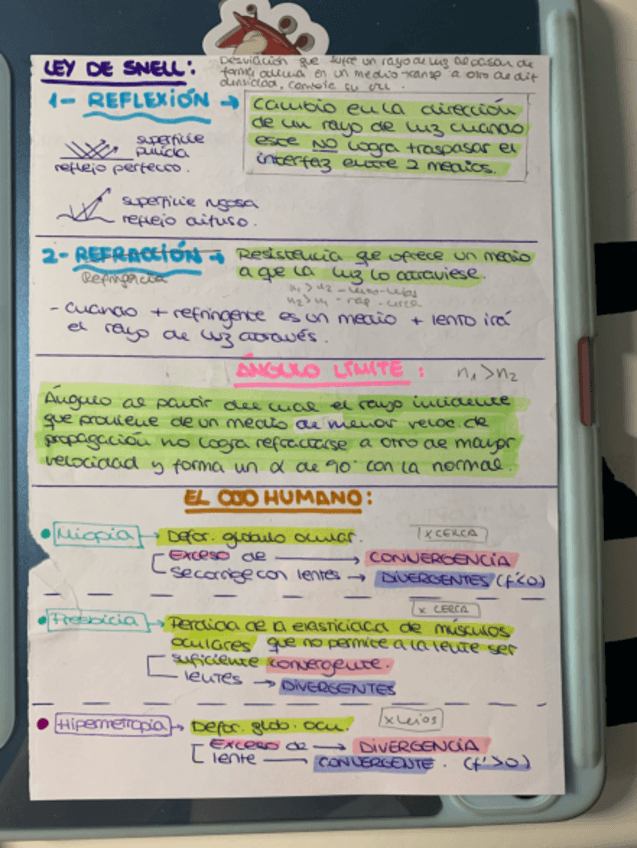 LEY DE SNELL:
Desviación que sufre un rayo de luz al pasar de
forma oblicua en un medio transp a otro de dif
densidad,
1- REFLEXIÓN → Cambio en la dirección
de un rayo de luz cuando
este NO logra traspasar el
interfaz entre 2 medios.
superficie
pulida
reflejo perfecto.
superficie rugosa
reflejo difuso.
2- REFRACCIÓN → Resistencia que ofrece un medio
a que la luz lo atraviese.
Refringencia
n₁ > n₂
n₂ > n₁
- cuando + refringente es un medio + lento irá
el rayo de luz através.
ÁNGULO LÍMITE : n₁ > n₂
Ángulo al partir del cual el rayo incidente
que proviene de un medio de menor veloc. de
propagación no logra refractarse a otro de mayor
velocidad y forma un α de 90° con la normal.
EL OJO HUMANO:
Miopía → Defor. globulo ocular. x CERCA
Exceso de → CONVERGENCIA
se corrige con lentes → DIVERGENTES (f'<0)
Presbicia → Perdida de la elasticidad de músculos x CERCA
oculares que no permite a la lente ser
suficiente convergente.
lentes → DIVERGENTES
Hipermetropía → Defor. glob. ocu. x Lejos
Exceso de → DIVERGENCIA
lente → CONVERGENTE. (f'>0)